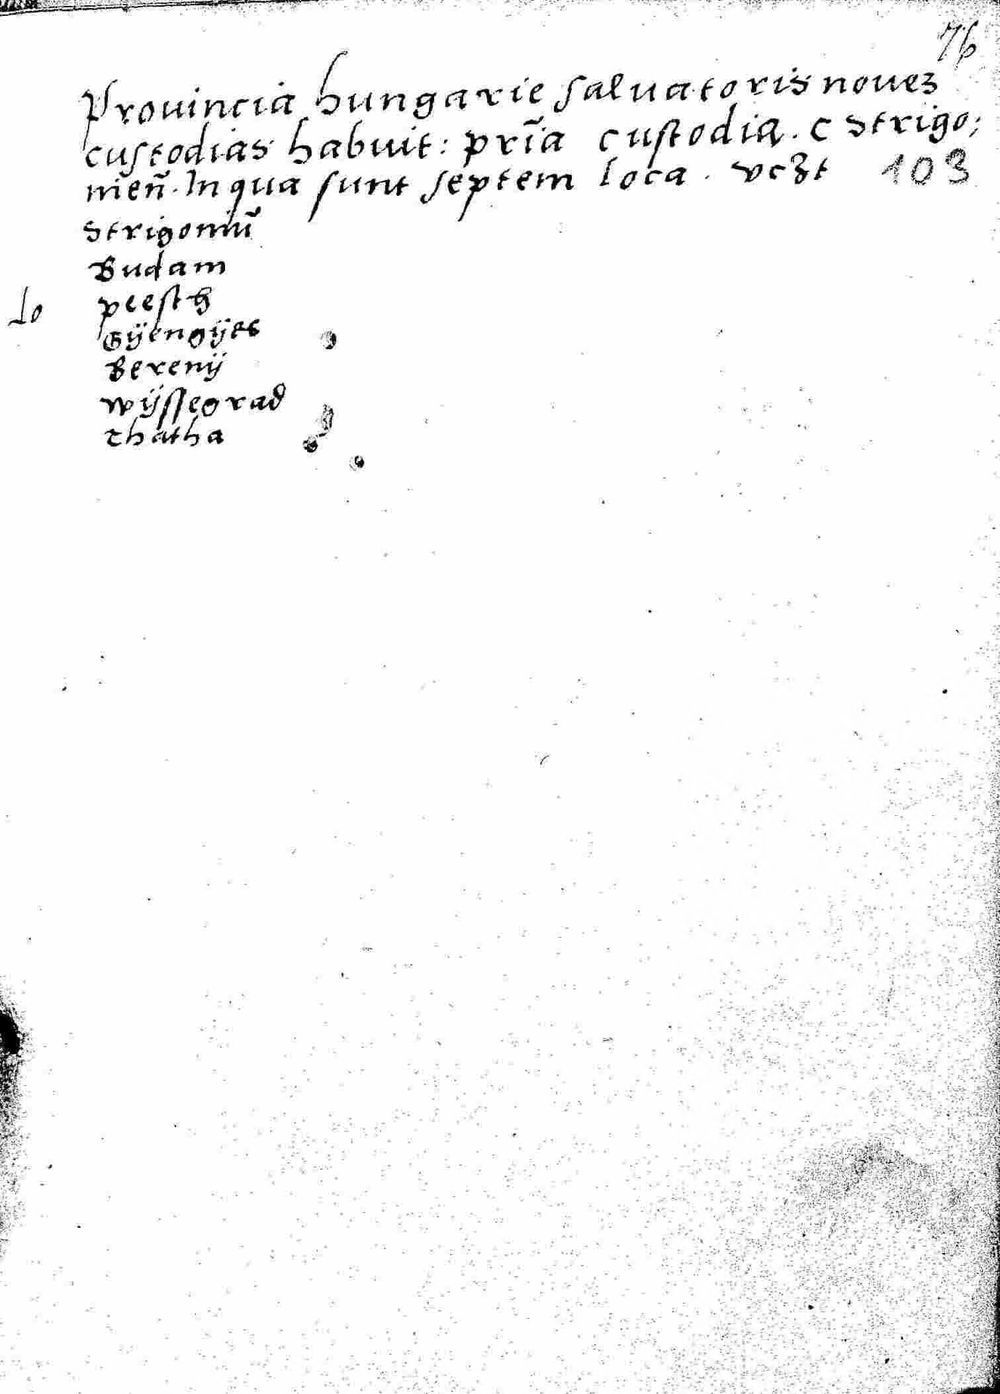 76
Prouincia hungarie saluatoris nouez
custodias habuit: pria͂ custodia. C Strigo;
nien͂. In qua sunt septem loca. vcȝt 103
Strigoniu͂
Budam
peesth
Gÿengÿes
Berenÿ
wÿssegrad
thatha